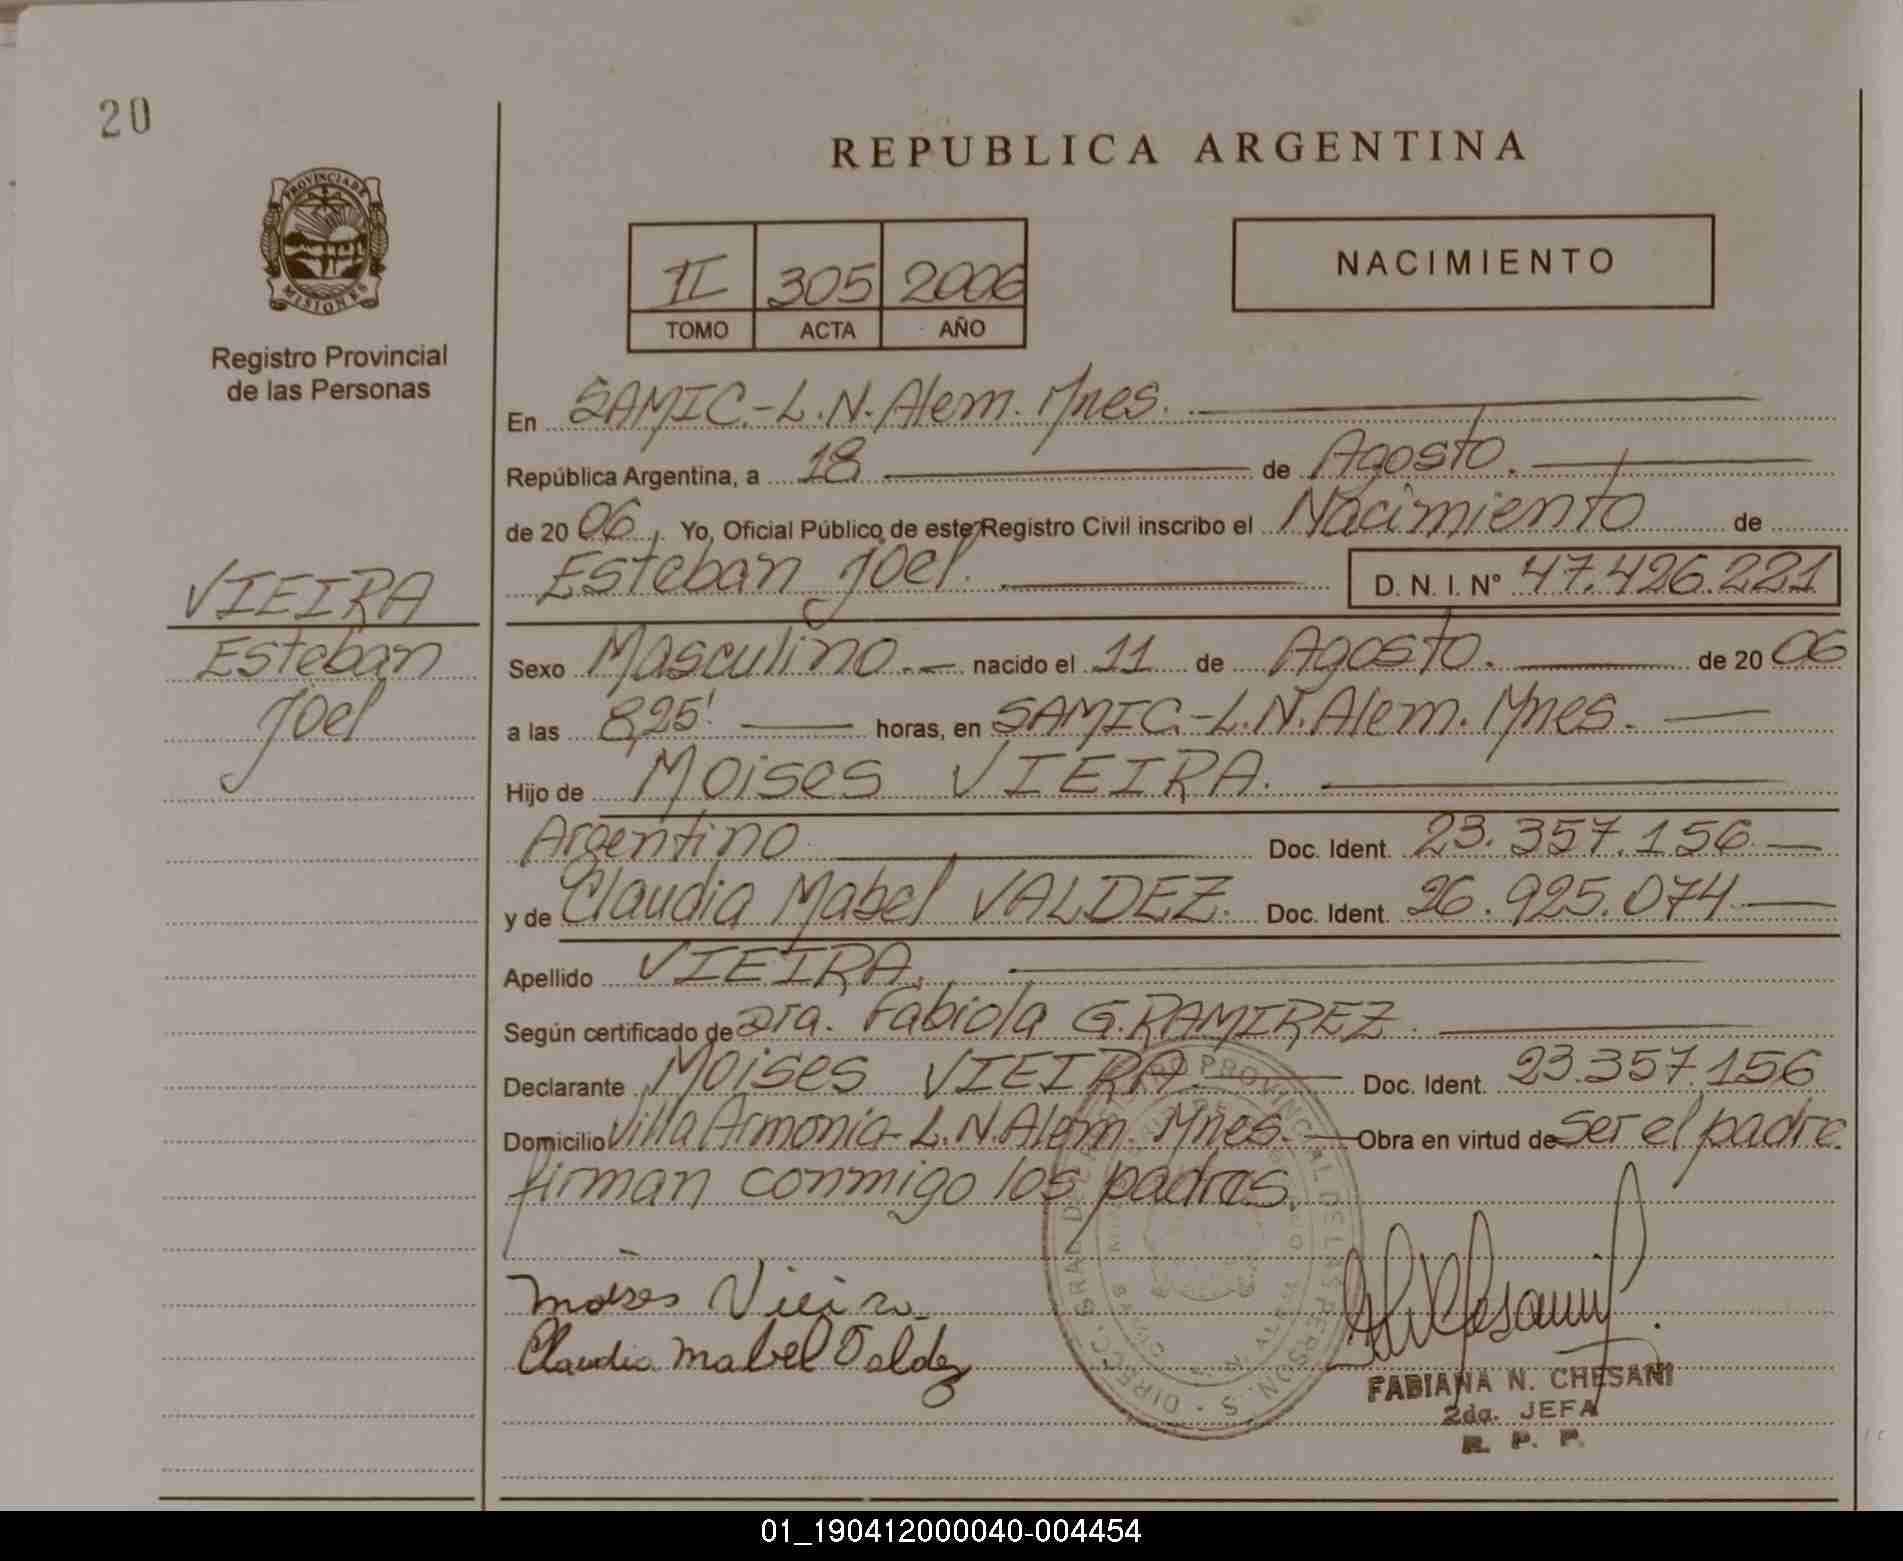 20
REPUBLICA ARGENTINA
PROVINCIA DE
MISIONES
Registro Provincial
de las Personas
II 305 2006
TOMO ACTA AÑO
NACIMIENTO
En SAMIC.-L.N.Alem.Mnes.
República Argentina, a 18 de Agosto.
de 20 06, Yo, Oficial Público de este Registro Civil inscribo el Nacimiento de
Esteban Joel. D. N. I. N° 47.426.221
VIEIRA
Esteban
Joel
Sexo Masculino.- nacido el 11 de Agosto. de 20 06
a las 8,25' horas, en SAMIC.-L.N.Alem.Mnes.
Hijo de Moises VIEIRA.
Argentino Doc. Ident. 23.357.156
y de Claudia Mabel VALDEZ. Doc. Ident. 26.925.074
Apellido VIEIRA.
Según certificado de Dra. Fabiola G.RAMIREZ.
Declarante Moises VIEIRA. Doc. Ident. 23.357.156
Domicilio Villa Armonia-L.N.Alem.Mnes. Obra en virtud de ser el padre.
firman conmigo los padres.
Moises Vieira
Claudia Mabel Valdez
FABIANA N. CHESANI
2da. JEFA
R. P. P.
01_190412000040-004454